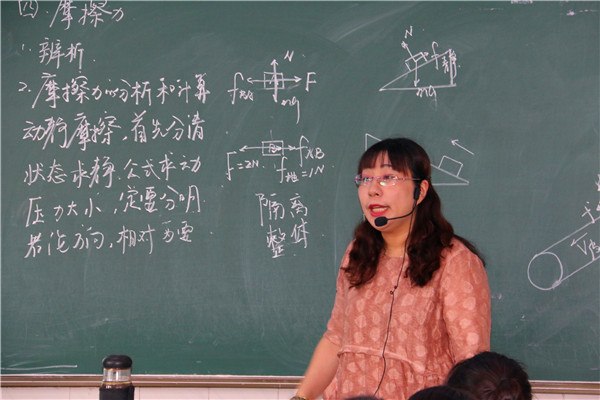 四.摩擦力
1.辨析.
2.摩擦力的分析和计算
动静摩擦,首先分清
状态求静.公式求动
压力大小,定要分明
若论方向,相对为要
N
F
mg
F=2N
f地=1N
隔离
整体
N
f静
mg